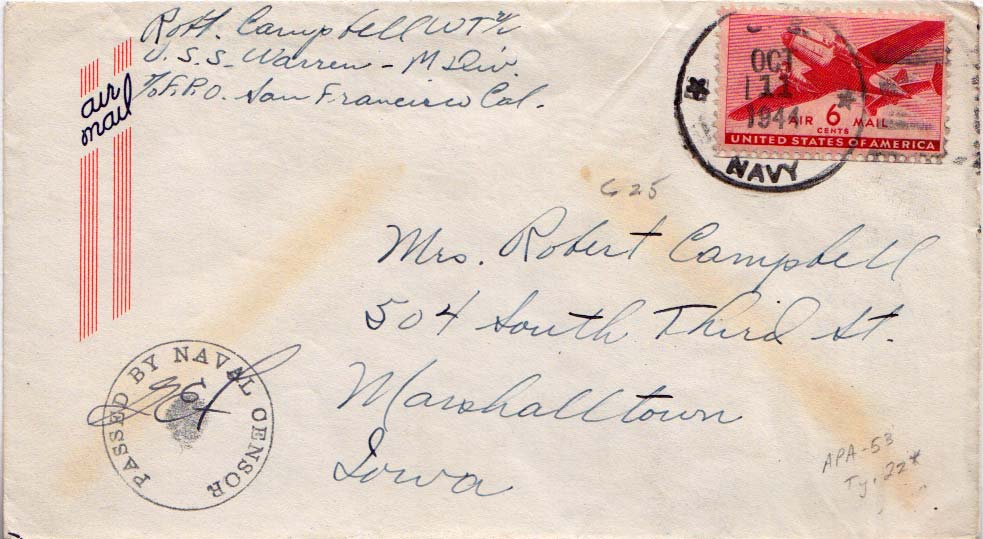 Robt. Campbell WT 2/c
U.S.S. Warren - M Div.
c/o F.P.O. San Francisco Cal.
air
mail
OCT
11
1944
NAVY
AIR 6 MAIL
CENTS
UNITED STATES OF AMERICA
C25
Mrs. Robert Campbell
504 South Third St.
Marshalltown
Iowa
PASSED BY NAVAL CENSOR
APA-53
Ty. 22*